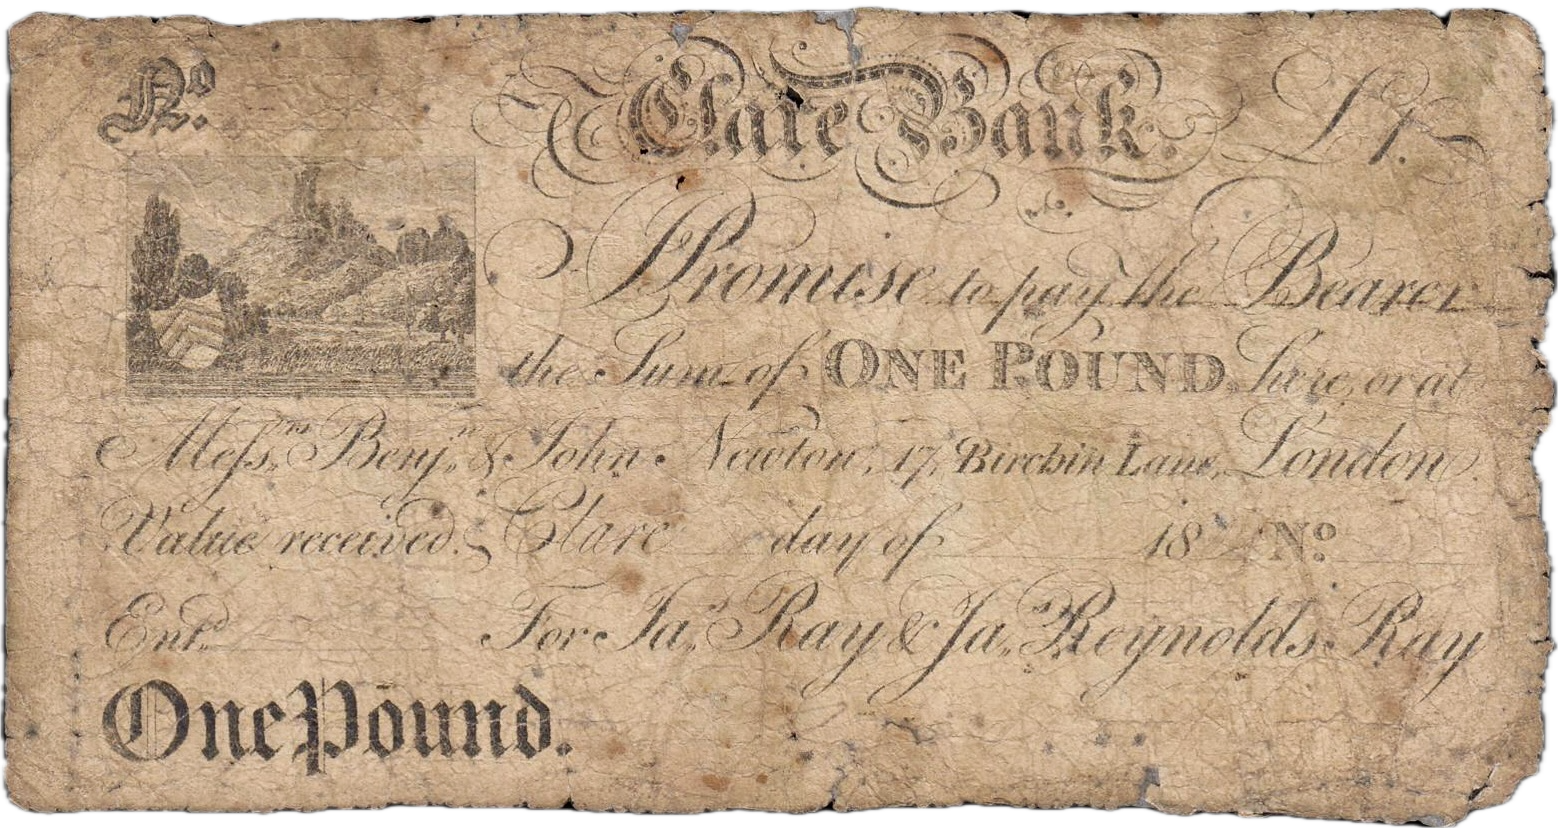 No. Clare Bank. £1.
Promise to pay the Bearer
the Sum of ONE POUND, here, or at
Messrs. Benjn. & John Newton, 17, Birchin Lane, London.
Value received. Clare day of 18 No.
Entd. For Jas. Ray & Ja. Reynolds Ray
One Pound.